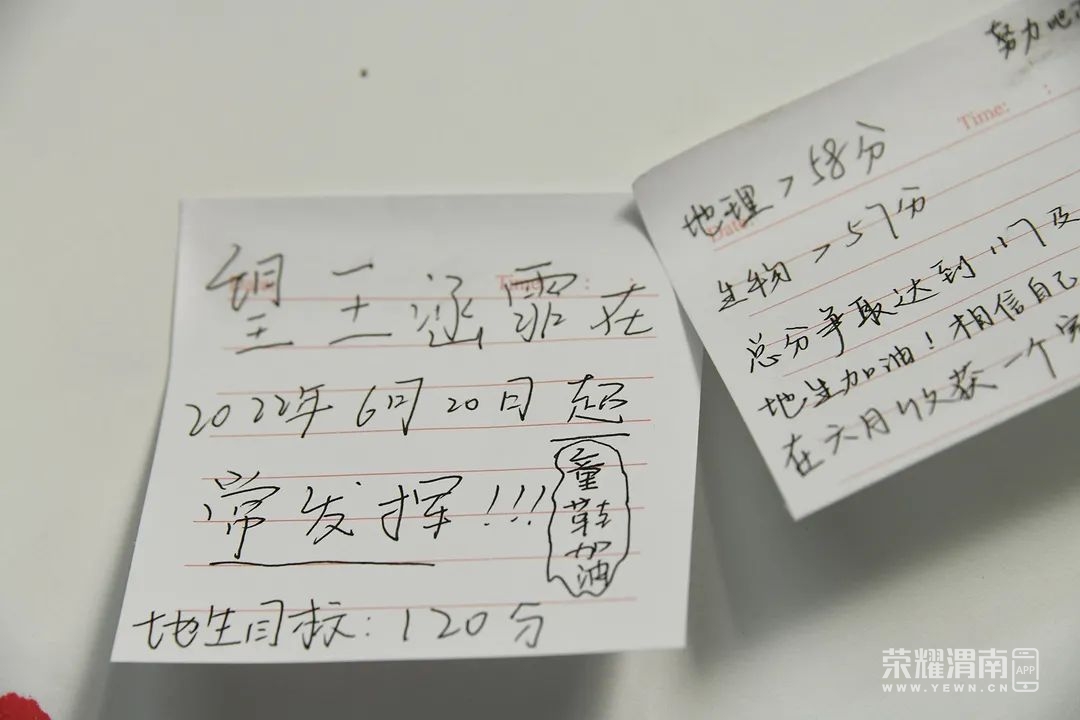 Time: :
望王涵霏在
2022年6月20日超
常发挥!!!
童鞋加油
地生目标:120分
努力吧
Time: :
Date:
地理>58分
生物>57分
总分争取达到117及
地生加油!相信自己
在六月收获一个完
荣耀渭南
APP
WWW.YEWN.CN